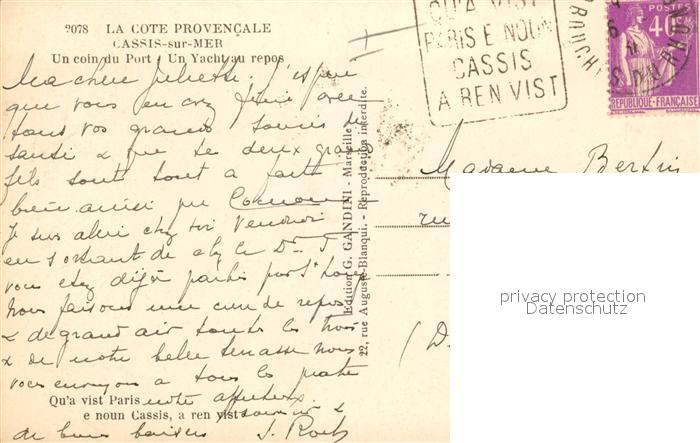 2078 LA COTE PROVENÇALE
CASSIS-sur-MER
Un coin du Port - Un Yacht au repos
Ma chère Juliette. J'espère
que vous en avez fini avec
tous vos grands soucis de
santé & que
fils sont tout à fait
bien ainsi que
Je suis allée chez toi Vendredi
en sortant de chez le Dr
vous étiez déjà partis pour St
Nous faisons une cure de repos
& de grand air toutes les trois
& de notre belle terrasse nous
vous envoyons à tous les
notre affectueux
Qu'a vist Paris
e noun Cassis, a ren vist
souvenir &
de bons baisers J.
Edition G. GANDINI - Marseille
22, rue Auguste-Blanqui. - Reproduction interdite.
QU'A VIST
PARIS E NOUN
CASSIS
A REN VIST
POSTES 40c
REPUBLIQUE-FRANÇAISE
Madame Bertin
(D
privacy protection
Datenschutz